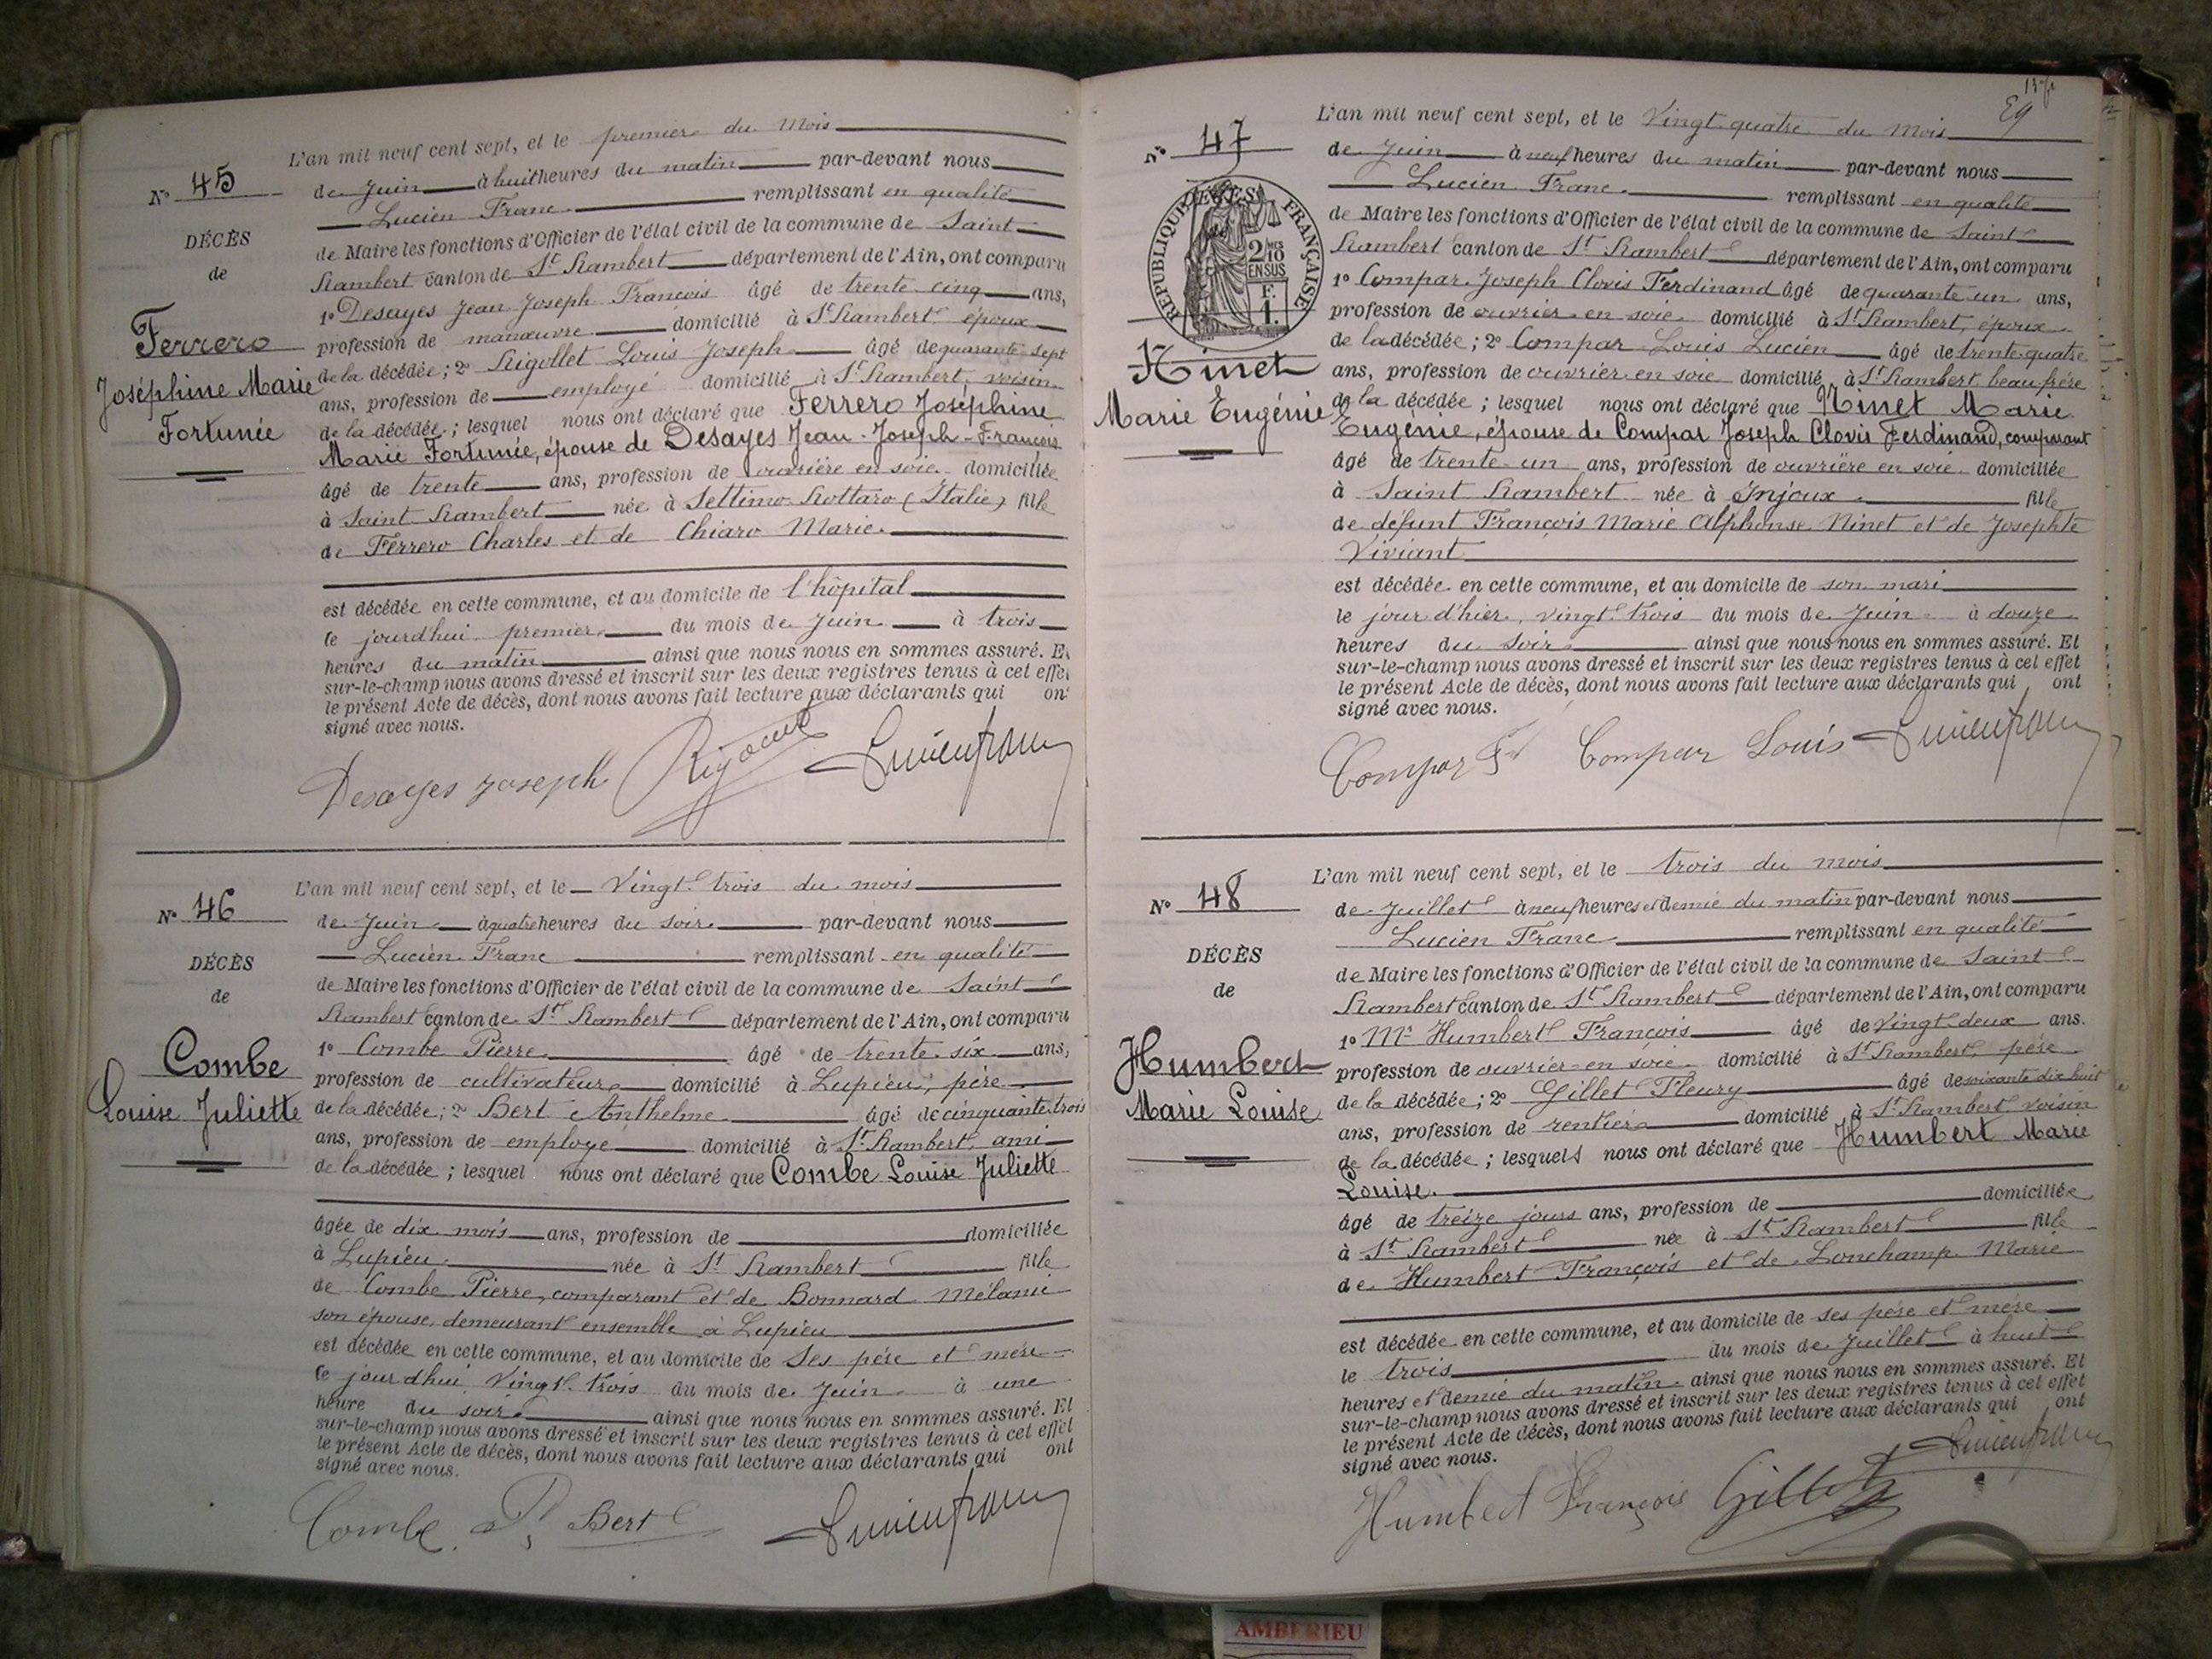 L'an mil neuf cent sept, et le premier du mois
N° 45
de Juin à huit heures du matin par-devant nous
Lucien Franc remplissant en qualité
DÉCÈS
de
de Maire les fonctions d'Officier de l'état civil de la commune de Saint
Rambert canton de St Rambert département de l'Ain, ont comparu
1° Desayes Jean Joseph François âgé de trente cinq ans,
Ferrero
Joséphine Marie
Fortunée
profession de manœuvre domicilié à St Rambert époux
de la décédée ; 2° Rigollet Louis Joseph âgé de quarante sept
ans, profession de employé domicilié à St Rambert, voisin
de la décédée ; lesquel nous ont déclaré que Ferrero Joséphine
Marie Fortunée, épouse de Desayes Jean-Joseph-François
âgé de trente ans, profession de ouvrière en soie domiciliée
à Saint Rambert née à Settimo-Rottaro (Italie) fille
de Ferrero Charles et de Chiaro Marie.
est décédée en cette commune, et au domicile de l'hôpital
le jourd'hui premier du mois de Juin à trois
heures du matin ainsi que nous nous en sommes assuré. Et
sur-le-champ nous avons dressé et inscrit sur les deux registres tenus à cet effet
le présent Acte de décès, dont nous avons fait lecture aux déclarants qui ont
signé avec nous.
Desayes Joseph
Lucien Franc
L'an mil neuf cent sept, et le Vingt trois du mois
N° 46
de Juin à quatre heures du soir par-devant nous
Lucien Franc remplissant en qualité
DÉCÈS
de
de Maire les fonctions d'Officier de l'état civil de la commune de Saint
Rambert canton de St Rambert département de l'Ain, ont comparu
1° Combe Pierre âgé de trente six ans,
Combe
Louise Juliette
profession de cultivateur domicilié à Lupieu, père
de la décédée ; 2° Bert Anthelme âgé de cinquante trois
ans, profession de employé domicilié à St Rambert, ami
de la décédée ; lesquel nous ont déclaré que Combe Louise Juliette
âgée de dix mois ans, profession de domiciliée
à Lupieu née à St Rambert fille
de Combe Pierre, comparant et de Bonnard Mélanie
son épouse, demeurant ensemble à Lupieu
est décédée en cette commune, et au domicile de ses père et mère
le jourd'hui Vingt trois du mois de Juin à une
heure du soir ainsi que nous nous en sommes assuré. Et
sur-le-champ nous avons dressé et inscrit sur les deux registres tenus à cet effet
le présent Acte de décès, dont nous avons fait lecture aux déclarants qui ont
signé avec nous.
Combe P. Bert Lucien Franc
L'an mil neuf cent sept, et le Vingt quatre du mois
N° 47
de Juin à neuf heures du matin par-devant nous
Lucien Franc remplissant en qualité
de Maire les fonctions d'Officier de l'état civil de la commune de Saint
Rambert canton de St Rambert département de l'Ain, ont comparu
RÉPUBLIQUE FRANÇAISE
2/10 EN SUS
1° Compar Joseph Clovis Ferdinand âgé de quarante un ans,
profession de ouvrier en soie domicilié à St Rambert, époux
Ninet
Marie Eugénie
de la décédée ; 2° Compar Louis Lucien âgé de trente quatre
ans, profession de ouvrier en soie domicilié à St Rambert beau frère
de la décédée ; lesquel nous ont déclaré que Ninet Marie
Eugénie, épouse de Compar Joseph Clovis Ferdinand, comparant
âgé de trente un ans, profession de ouvrière en soie domiciliée
à Saint Rambert née à Injoux fille
de défunt François Marie Alphonse Ninet et de Josephte
Viviant
est décédée en cette commune, et au domicile de son mari
le jour d'hier, vingt trois du mois de Juin à douze
heures du soir ainsi que nous nous en sommes assuré. Et
sur-le-champ nous avons dressé et inscrit sur les deux registres tenus à cet effet
le présent Acte de décès, dont nous avons fait lecture aux déclarants qui ont
signé avec nous.
Compar Fd Compar Louis Lucien Franc
L'an mil neuf cent sept, et le trois du mois
N° 48
de Juillet à neuf heures et demie du matin par-devant nous
Lucien Franc remplissant en qualité
DÉCÈS
de
de Maire les fonctions d'Officier de l'état civil de la commune de Saint
Rambert canton de St Rambert département de l'Ain, ont comparu
1° Mr Humbert François âgé de Vingt deux ans.
Humbert
Marie Louise
profession de ouvrier en soie domicilié à St Rambert, père
de la décédée ; 2° Gillet Fleury âgé de soixante dix huit
ans, profession de rentier domicilié à St Rambert voisin
de la décédée ; lesquels nous ont déclaré que Humbert Marie
Louise.
âgé de treize jours ans, profession de domiciliée
à St Rambert née à St Rambert fille
de Humbert François et de Lonchamp Marie
est décédée en cette commune, et au domicile de ses père et mère
le trois du mois de Juillet à huit
heures et demie du matin ainsi que nous nous en sommes assuré. Et
sur-le-champ nous avons dressé et inscrit sur les deux registres tenus à cet effet
le présent Acte de décès, dont nous avons fait lecture aux déclarants qui ont
signé avec nous.
Lucien Franc
Humbert François Gillet
AMBERIEU